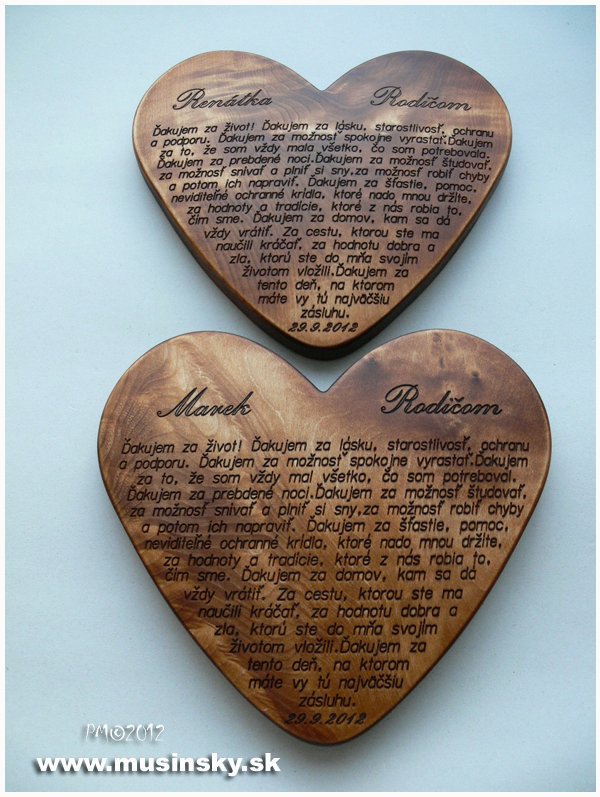 Renátka Rodičom
Ďakujem za život! Ďakujem za lásku, starostlivosť, ochranu
a podporu. Ďakujem za možnosť spokojne vyrastať.Ďakujem
za to, že som vždy mala všetko, čo som potrebovala.
Ďakujem za prebdené noci.Ďakujem za možnosť študovať,
za možnosť snívať a plniť si sny,za možnosť robiť chyby
a potom ich napraviť. Ďakujem za šťastie, pomoc,
neviditeľné ochranné krídla, ktoré nado mnou držíte,
za hodnoty a tradície, ktoré z nás robia to,
čím sme. Ďakujem za domov, kam sa dá
vždy vrátiť. Za cestu, ktorou ste ma
naučili kráčať, za hodnotu dobra a
zla, ktorú ste do mňa svojím
životom vložili.Ďakujem za
tento deň, na ktorom
máte vy tú najväčšiu
zásluhu.
29.9.2012
Marek Rodičom
Ďakujem za život! Ďakujem za lásku, starostlivosť, ochranu
a podporu. Ďakujem za možnosť spokojne vyrastať.Ďakujem
za to, že som vždy mal všetko, čo som potreboval.
Ďakujem za prebdené noci.Ďakujem za možnosť študovať,
za možnosť snívať a plniť si sny,za možnosť robiť chyby
a potom ich napraviť. Ďakujem za šťastie, pomoc,
neviditeľné ochranné krídla, ktoré nado mnou držíte,
za hodnoty a tradície, ktoré z nás robia to,
čím sme. Ďakujem za domov, kam sa dá
vždy vrátiť. Za cestu, ktorou ste ma
naučili kráčať, za hodnotu dobra a
zla, ktorú ste do mňa svojím
životom vložili.Ďakujem za
tento deň, na ktorom
máte vy tú najväčšiu
zásluhu.
29.9.2012
PM©2012
www.musinsky.sk